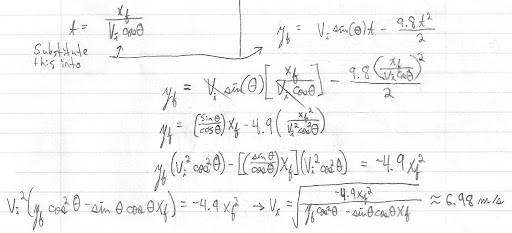 t = x_f / (V_i cosθ)
Substitute
this into
y_f = V_i sin(θ)t - 9.8t²/2
y_f = V_i sin(θ)[x_f / (V_i cosθ)] - 9.8(x_f / (V_i cosθ))²/2
y_f = (sinθ/cosθ)x_f - 4.9(x_f² / (V_i² cos²θ))
y_f(V_i² cos²θ) - [(sinθ/cosθ)x_f](V_i² cos²θ) = -4.9x_f²
V_i²(y_f cos²θ - sinθ cosθ x_f) = -4.9x_f² → V_i = √(-4.9x_f² / (y_f cos²θ - sinθ cosθ x_f)) ≈ 6.98 m/s